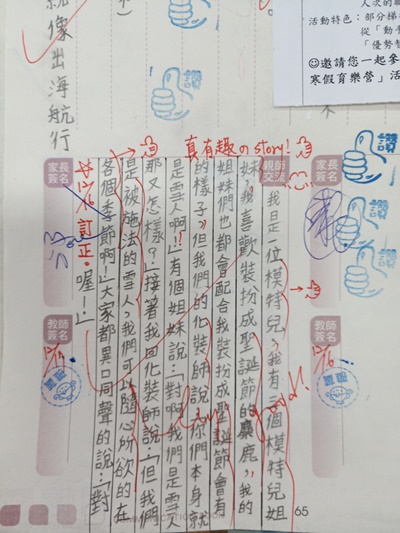 人次的
活動特色：部分梯
從「動手
「優勢智
☺邀請您一起參
寒假育樂營」活
像出海航行
讚
讚
讚
讚
讚
真有趣の story!
家長簽名
親師交流
教師簽名
12/16
我是一位模特兒，我有三個模特兒姐
妹，我喜歡裝扮成聖誕節的麋鹿，我的
姐妹們也都會配合我裝扮成聖誕節會有
的樣子，但我們的化裝師說：「你們本身就
是雪人啊!!」有個姐妹說：「對啊！我們是雪人
那又怎樣？」接著我回化裝師說：「但我們
是被施法的雪人，我們可以隨心所欲的在
各個季節啊！」大家都異口同聲的說：「對
喔！」
12/16 訂正。
家長簽名
教師簽名
65